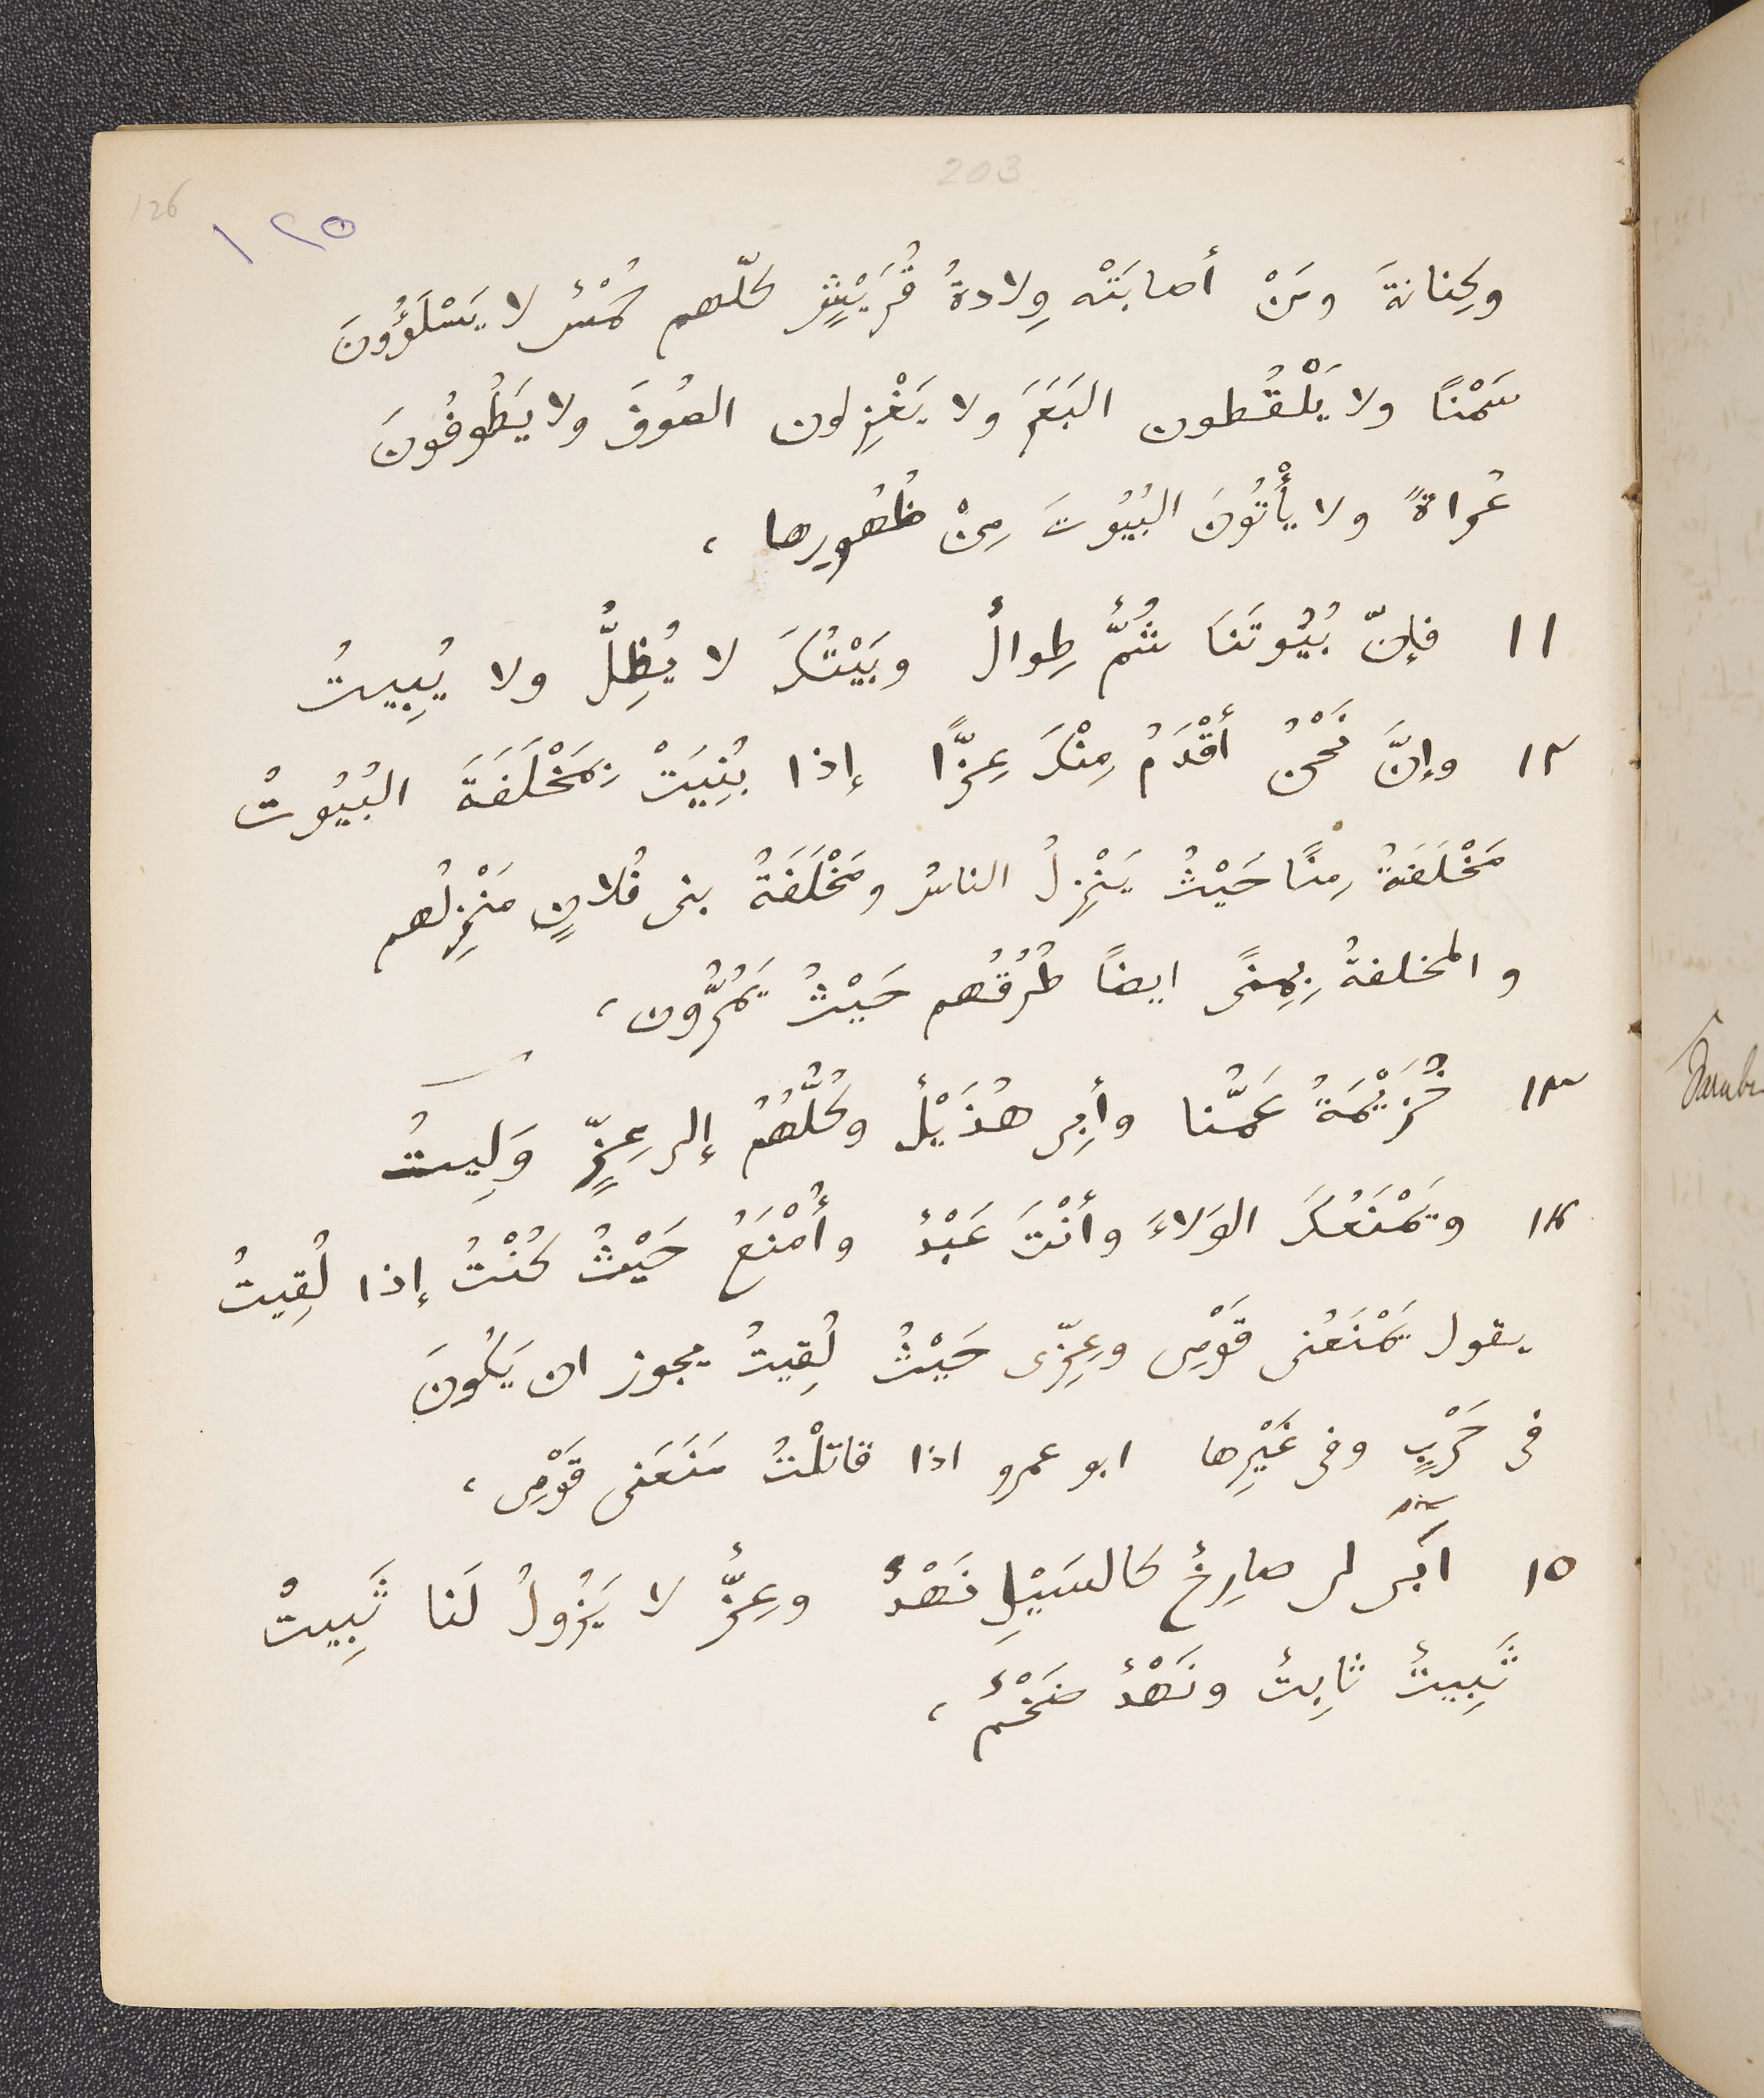 203
126
١٢٥
وكِنانةَ ومَنْ أصابَتْه وِلادةُ قُرَيْشٍ كلّهم حُمْسٌ لا يَسْلَؤُونَ
سَمْنًا ولا يَلْقُطون البَعَرَ ولا يَغْزِلون الصُوفَ ولا يَطُوفُونَ
عُراةً ولا يأْتُونَ البُيُوتَ مِنْ ظُهُورِها ،
١١ فإنّ بُيُوتَنَا شُمٌّ طِوالٌ وبَيْتُكَ لا يُظِلُّ ولا يُبِيتُ
١٢ وإنَّ نَحْنُ أقْدَمُ مِنْكَ عِزًّا إذا بُنِيَتْ بِمَخْلَفَةَ البُيُوتُ
مَخْلَفَةُ مِنًا حَيْثُ يَنْزِلُ الناسُ ومَخْلَفَةُ بنى فُلانٍ مَنْزِلُهم
والمخلفةُ بِمِنًى ايضًا طُرُقُهم حَيْثُ يَمُرُّون ،
١٣ خُزَيْمَةُ عَمُّنا وأبِى هُذَيْلٌ وكُلُّهُمُ إلى عِزٍّ وَلِيتُ
١٤ وتَمْنَعُكَ الوَلاءَ وأنْتَ عَبْدٌ وأُمْنَعُ حَيْثُ كُنْتُ إذا لُقِيتُ
يقول يَمْنَعُنى قَوْمِى وعِزّى حَيْثُ لُقِيتُ يجوز ان يَكُونَ
فى حَرْبٍ وفى غَيْرِها ابو عمرو اذا قاتلْتُ مَنَعَنى قَوْمِى ،
١٥ ابى لى صارِخٌ كالسَيْلِ نَهْدٌ وعِزٌّ لا يَزُولُ لَنا ثَبِيتُ
ثَبِيتٌ ثابِتٌ ونَهْدٌ ضَخْمٌ ،